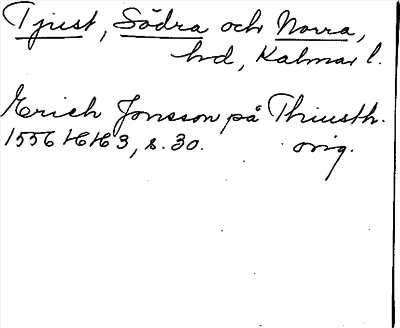 Tjust, Södra och Norra,
hd, Kalmar l.
Erich Jonsson på Thiusth.
1556 HH 3, s. 30. orig.